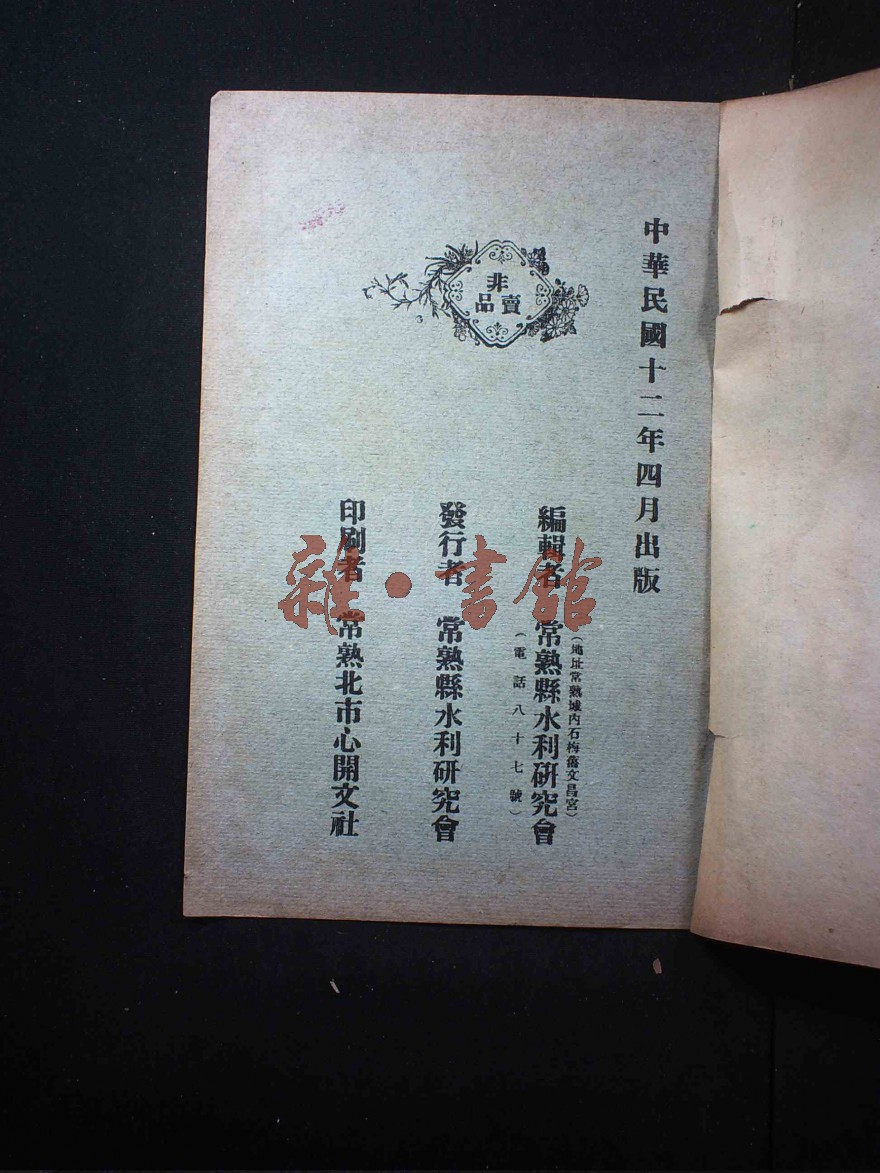 中華民國十二年四月出版
非賣品
編輯者　常熟縣水利研究會
（地址常熟城內石梅舊文昌宮）
（電話八十七號）
發行者　常熟縣水利研究會
印刷者　常熟北市心開文社
雜·書館